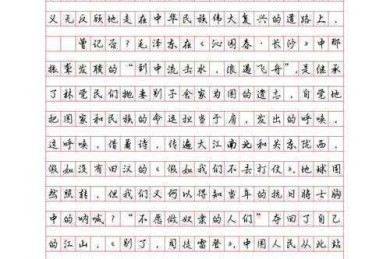 义无反顾地走在中华民族伟大复兴的道路上。
曾记否？毛泽东在《沁园春·长沙》中那
振聋发聩的“到中流击水，浪遏飞舟”，是继承
了林觉民们抛妻别子舍家为国的遗志，自觉地
把国家和民族的命运担当于肩，发出的呼唤，
这呼唤，借着诗，传遍大江南北和关东陇西，
假如没有田汉的《假如我们不去打仗》，地球固
然照转，但我们又何以得知当年的抗日将士胸
中的呐喊？“不愿做奴隶的人们”夺回了自己
的江山，《别了，司徒雷登》，中国人民从此站